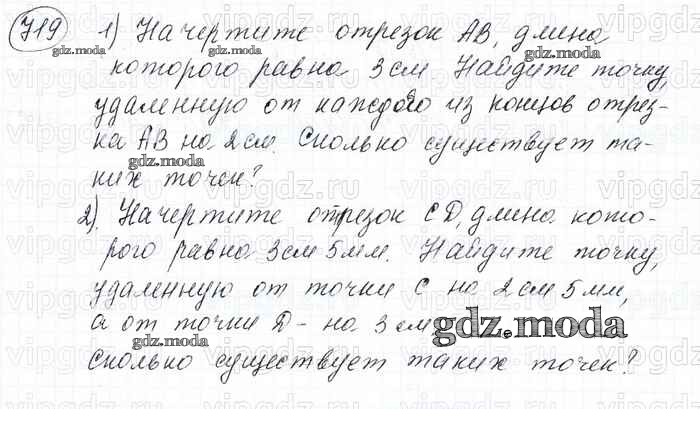 719 1) Начертите отрезок AB, длина
которого равна 3 см. Найдите точку,
удаленную от каждого из концов отрез-
ка AB на 2 см. Сколько существует та-
ких точек?
2). Начертите отрезок CD, длина кото-
рого равна 3 см 5 мм. Найдите точку,
удаленную от точки C на 2 см 5 мм,
а от точки D - на 3 см
Сколько существует таких точек?
gdz.moda
gdz.moda
gdz.moda
gdz.moda
gdz.moda
gdz.moda
gdz.moda